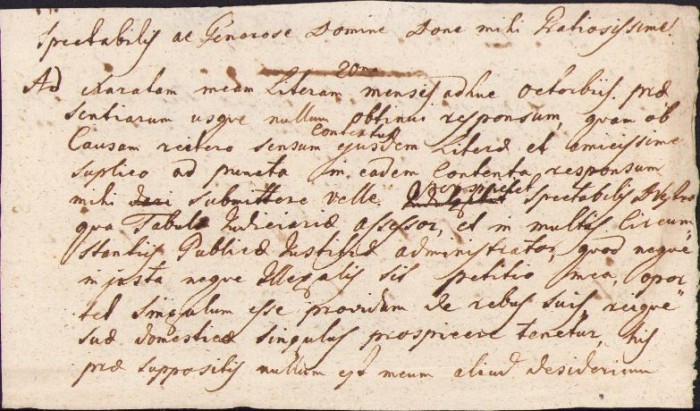 Spectabilis ac Generose Domine Done mihi Gratiosissime!
20ma
Ad exaratam meam Literam mensis adhuc Octobris præ
sentiarum usque nullum obtinui responsum, quam ob
Contentum
Causam reitero sensum ejusdem Literæ et amicissime
suplico ad puncta in eadem Contenta responsum
mihi submittere velle. Spectabilis
qua Tabulæ Judiciariæ assessor, et in multis Circum
stantiis Publicæ Justitiæ administrator, quod neque
injusta neque illegalis sit petitio mea, opor
tet singulum esse providum de rebus suis, reique
suæ domesticæ singulus prospicere tenetur, his
præ suppositis nullum est meum aliud desiderium